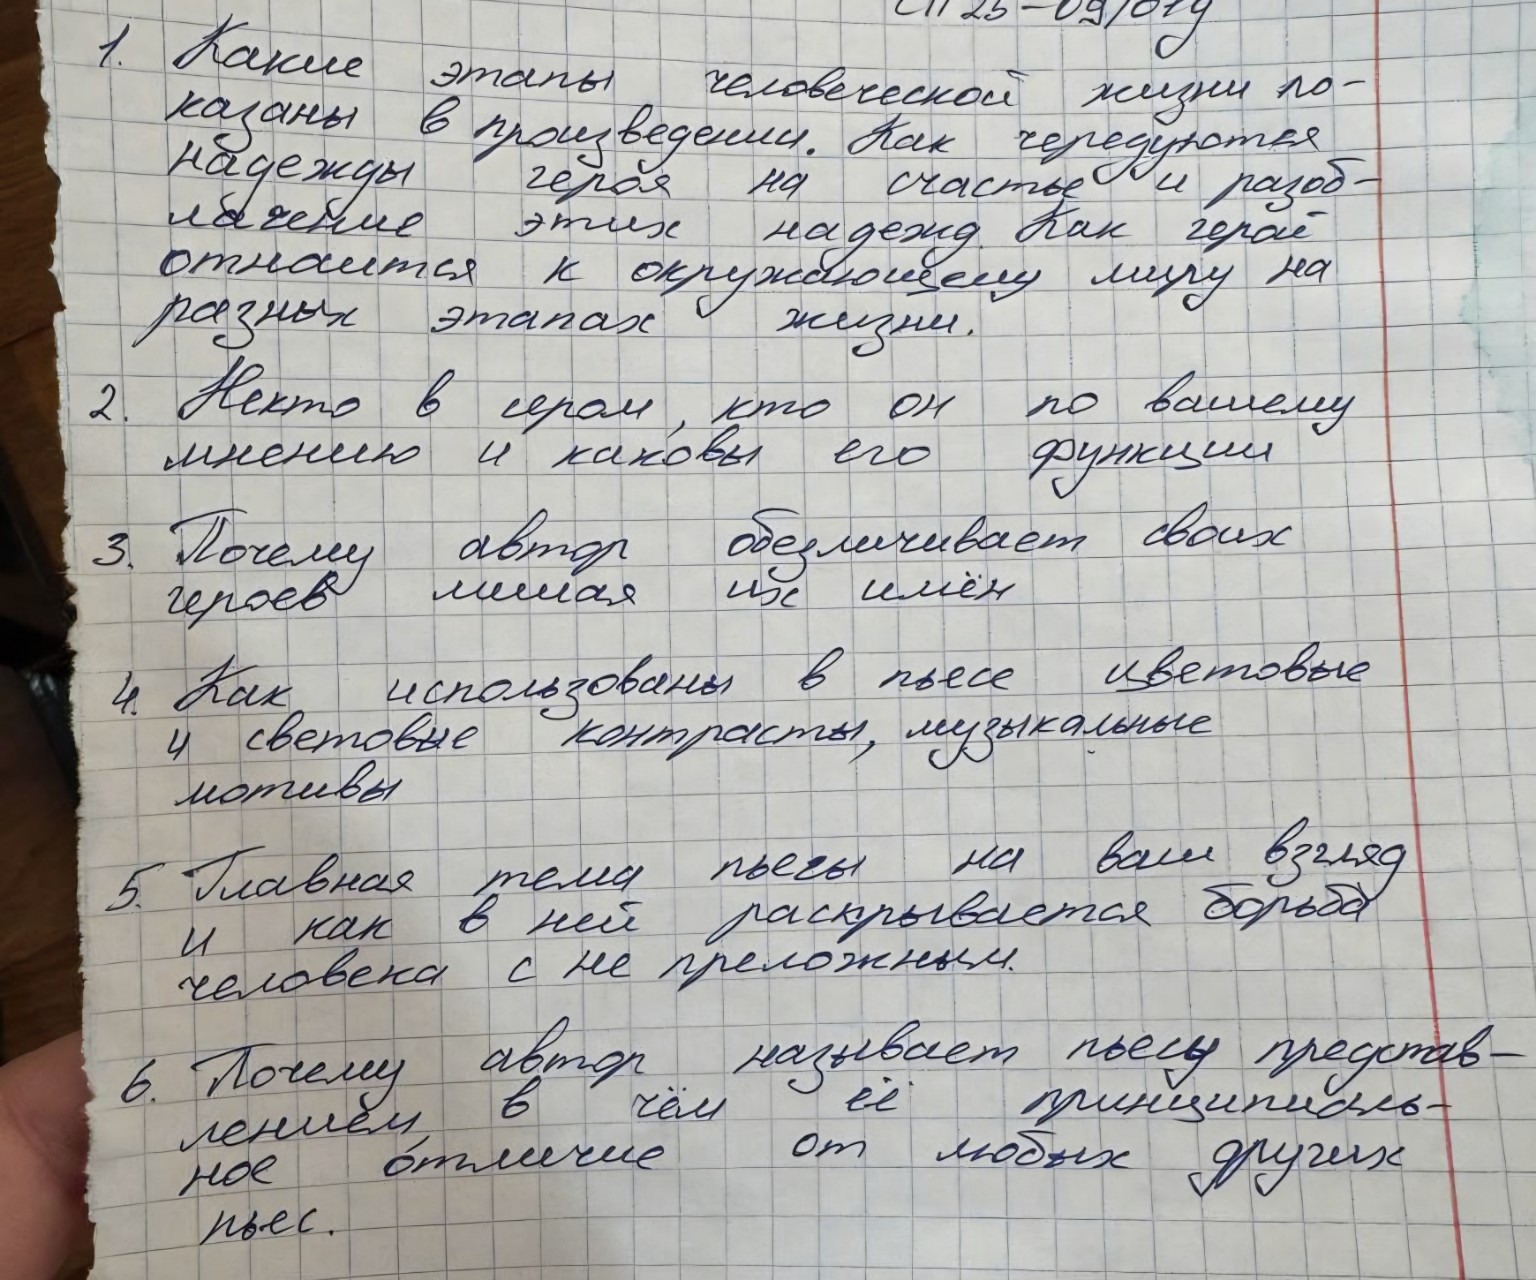 СП 25-09/01у
1. Какие этапы человеческой жизни по-
казаны в произведении. Как чередуются
надежды героя на счастье и разоб-
лачение этих надежд. Как герой
относится к окружающему миру на
разных этапах жизни.
2. Некто в сером, кто он по вашему
мнению и каковы его функции
3. Почему автор обезличивает своих
героев лишая их имён
4. Как использованы в пьесе цветовые
и световые контрасты, музыкальные
мотивы
5. Главная тема пьесы на ваш взгляд
и как в ней раскрывается борьба
человека с не преложным.
6. Почему автор называет пьесу представ-
лением, в чём её принципиаль-
ное отличие от любых других
пьес.